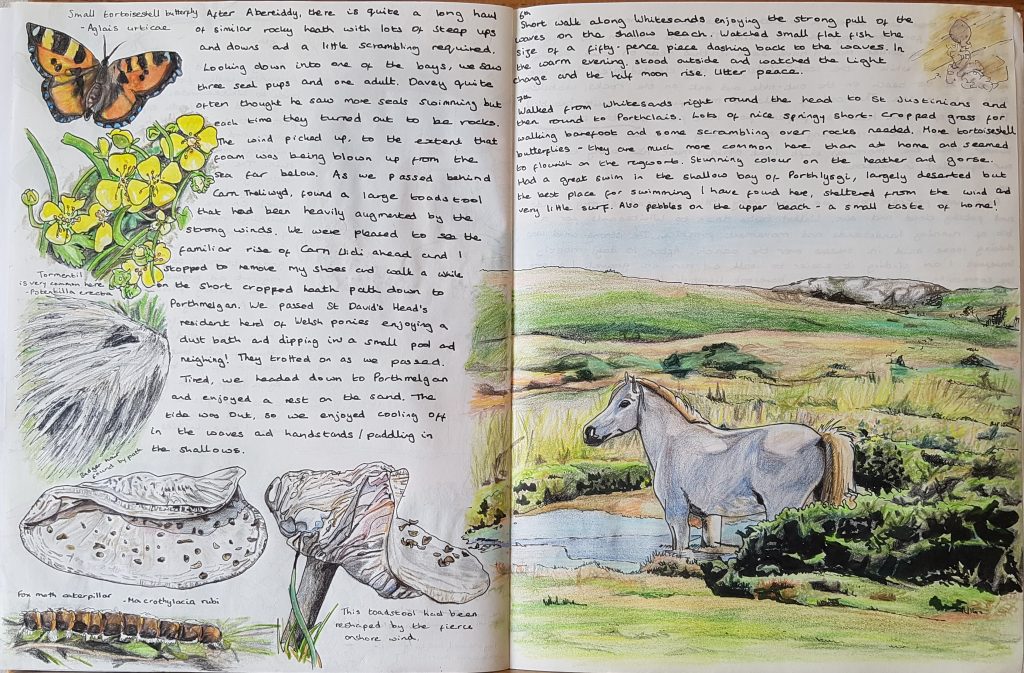 Small tortoiseshell butterfly
- Aglais urticae
After Abereiddy, there is quite a long haul
of similar rocky heath with lots of steep ups
and downs ad a little scrambling required.
Looking down into one of the bays, we saw
three seal pups and one adult. Davey quite
often thought he saw more seals swimming but
each time they turned out to be rocks.
The wind picked up, to the extent that
foam was being blown up from the
sea far below. As we passed behind
Carn Treliwyd, found a large toadstool
that had been heavily augmented by the
strong winds. We were pleased to see the
familiar rise of Carn Llidi ahead and I
stopped to remove my shoes and walk a while
on the short cropped heath path down to
Porthmelgan. We passed St David's Head's
resident herd of Welsh ponies enjoying a
dust bath and dipping in a small pool and
neighing! They trotted on as we passed.
Tired, we headed down to Porthmelgan
and enjoyed a rest on the sand. The
tide was out, so we enjoyed cooling off
in the waves ad handstands/paddling in
the shallows.
Tormentil
is very common here
- Potentilla erecta
Badger hair
found by path
Fox moth caterpillar
- Macrothylacia rubi
This toadstool had been
reshaped by the fierce
onshore wind.
6th
Short walk along Whitesands enjoying the strong pull of the
waves on the shallow beach. Watched small flat fish the
size of a fifty-pence piece dashing back to the waves. In
the warm evening, stood outside and watched the light
change and the half moon rise. Utter peace.
7th
Walked from Whitesands right round the head to St Justinians and
then round to Porthclais. Lots of nice springy short-cropped grass for
walking barefoot and some scrambling over rocks needed. More tortoiseshell
butterflies - they are much more common here than at home and seemed
to flourish on the ragworb. Stunning colour on the heather and gorse.
Had a great swim in the shallow bay of Porthlysgi, largely deserted but
the best place for swimming I have found here, sheltered from the wind and
very little surf. Also pebbles on the upper beach - a small taste of home!